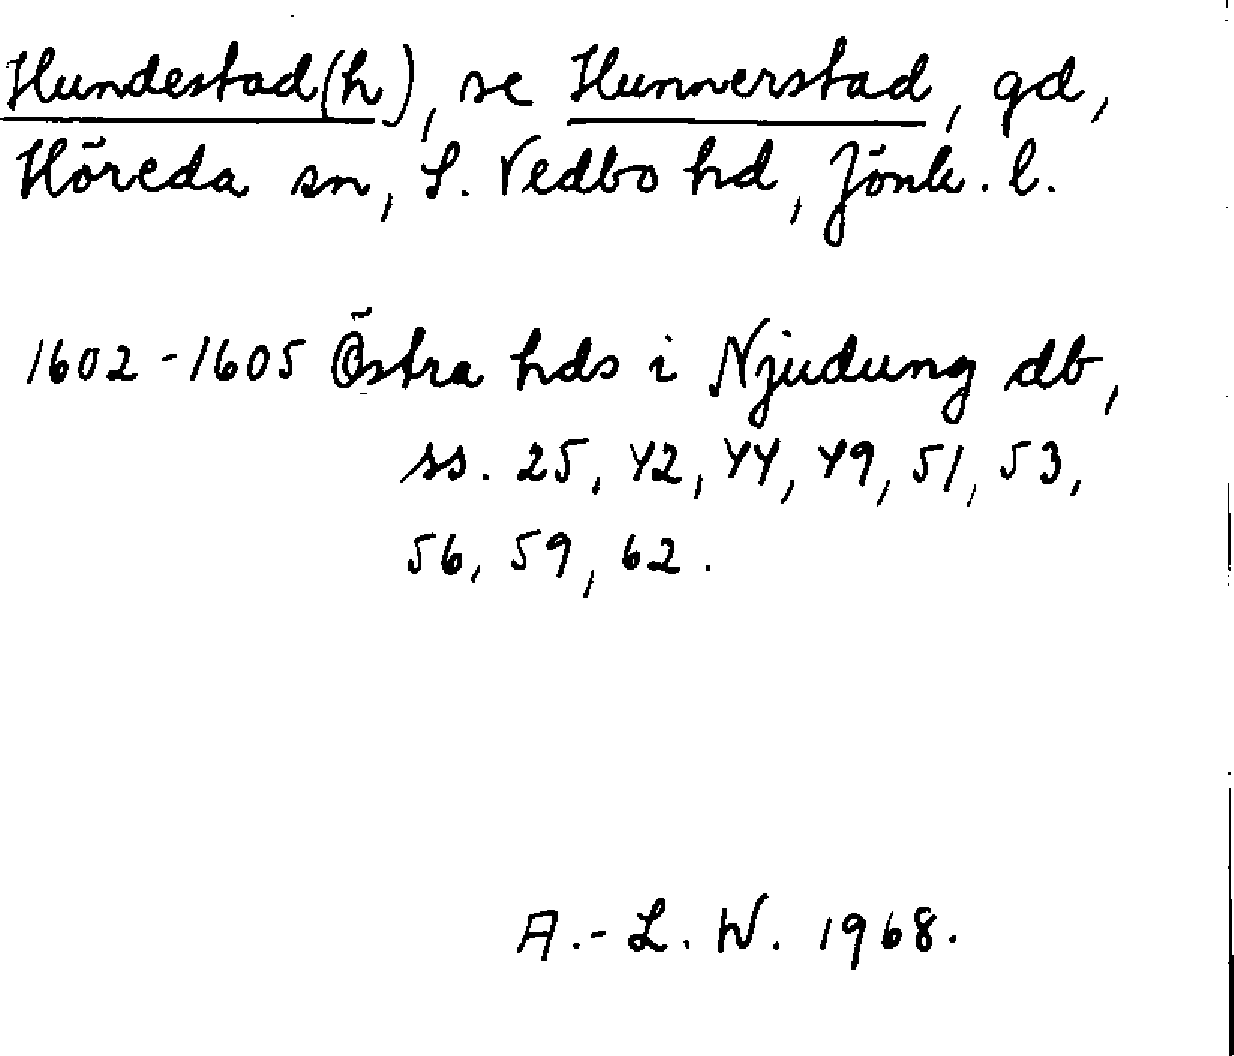 Hundestad(h), se Hunnerstad, gd,
Höreda sn, S. Vedbo hd, Jönk. l.
1602-1605 Östra hds i Njudung db,
ss. 25, 42, 44, 49, 51, 53,
56, 59, 62.
A.-L. W. 1968.